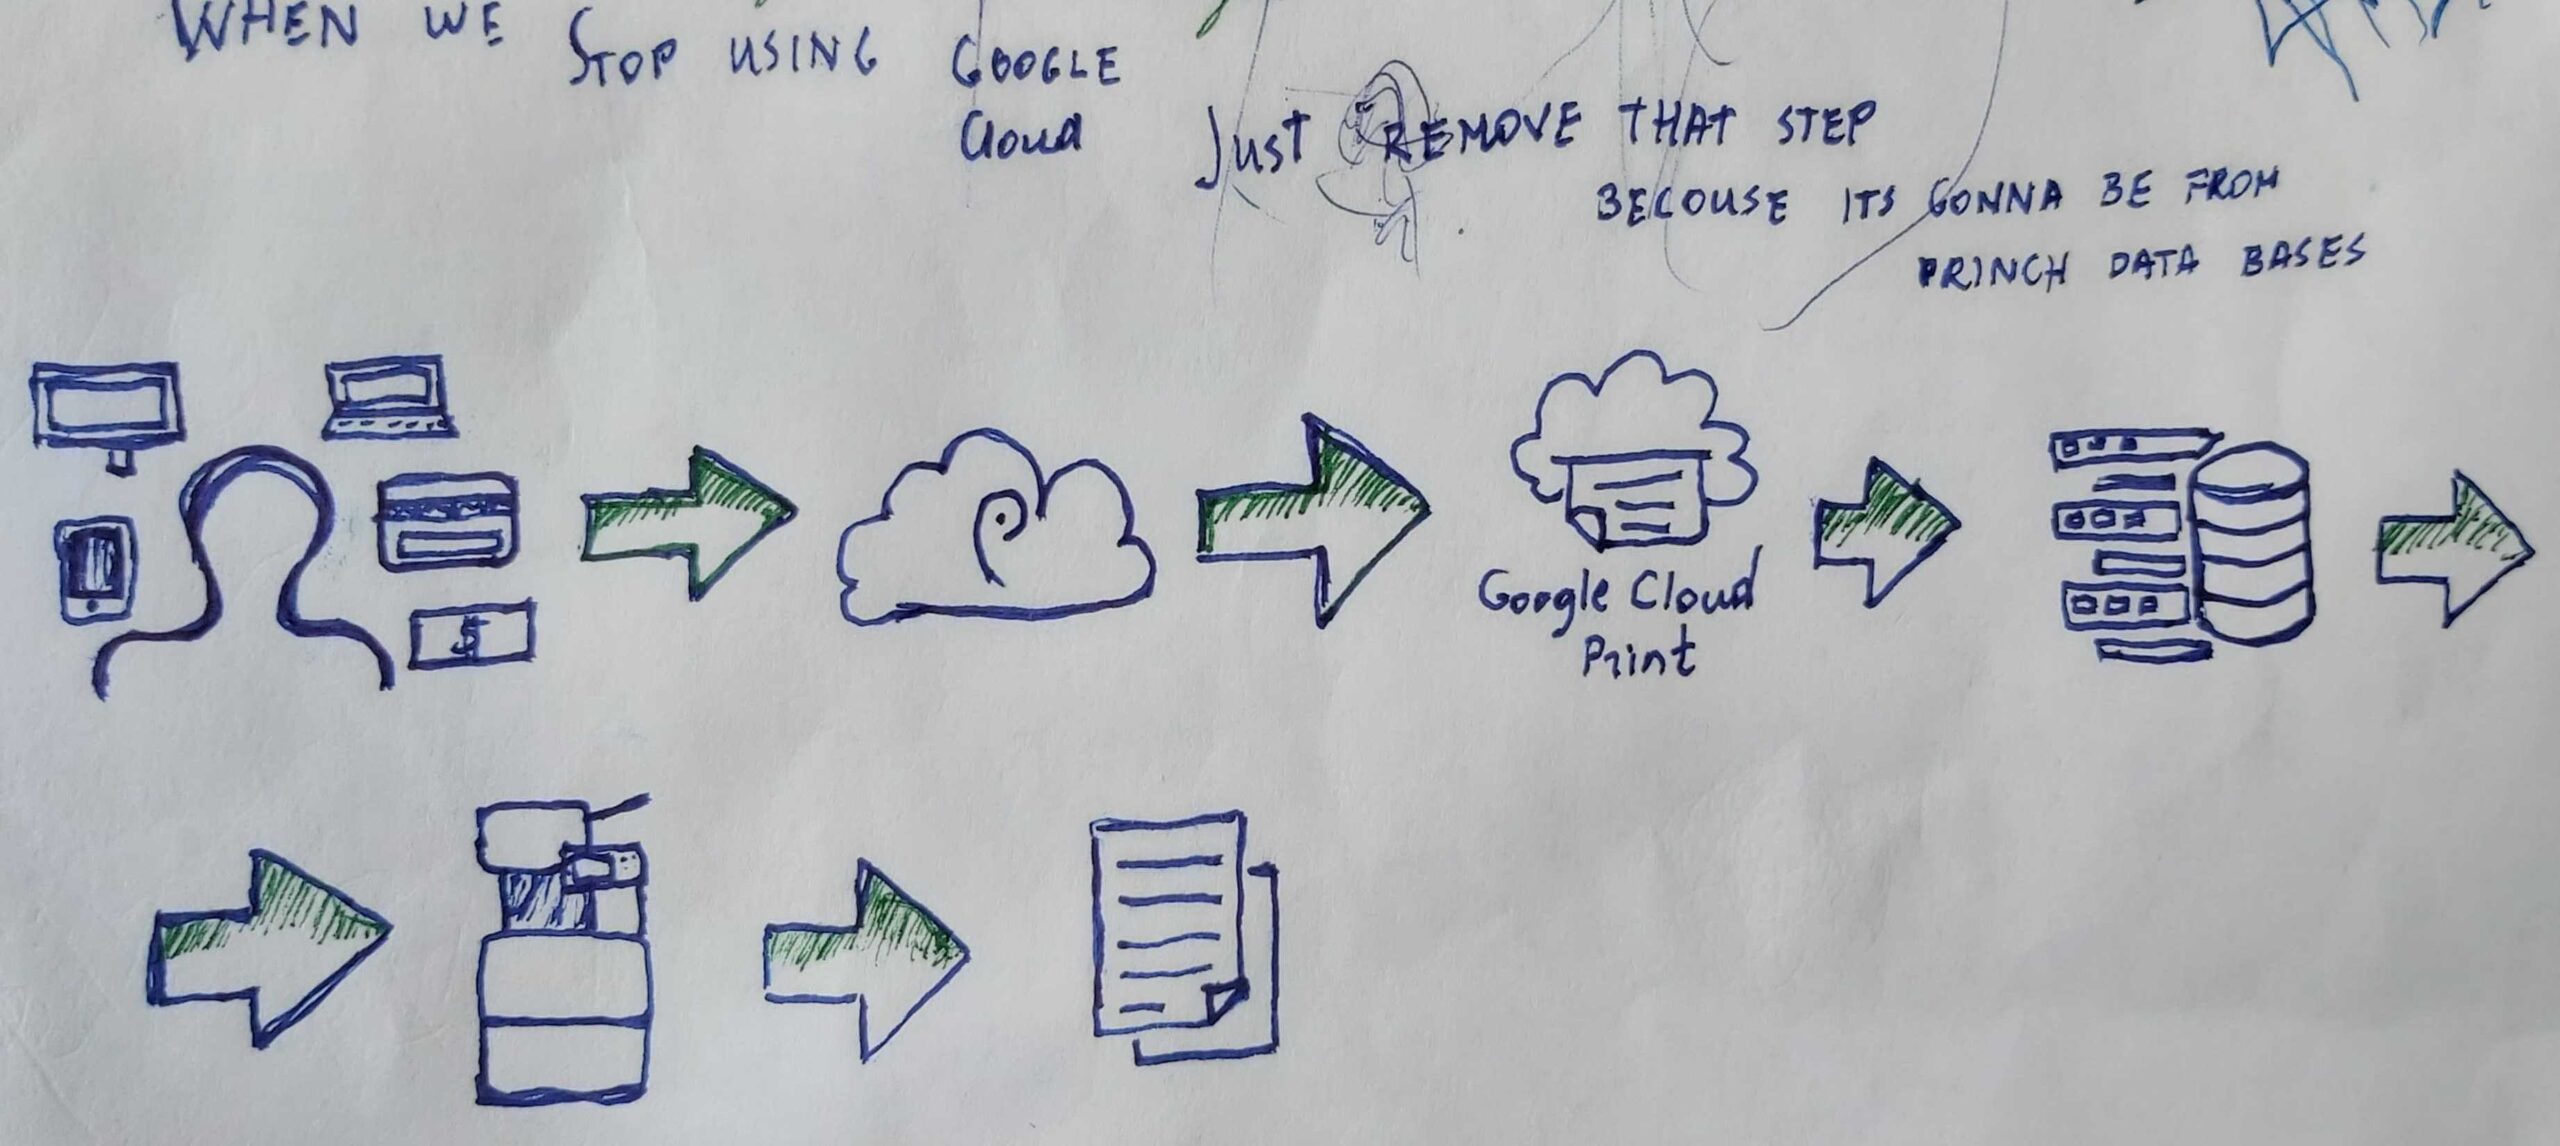 WHEN WE STOP USING GOOGLE
Cloud Just REMOVE THAT STEP
BECOUSE ITS GONNA BE FROM
PRINCH DATA BASES
$
Google Cloud
Print